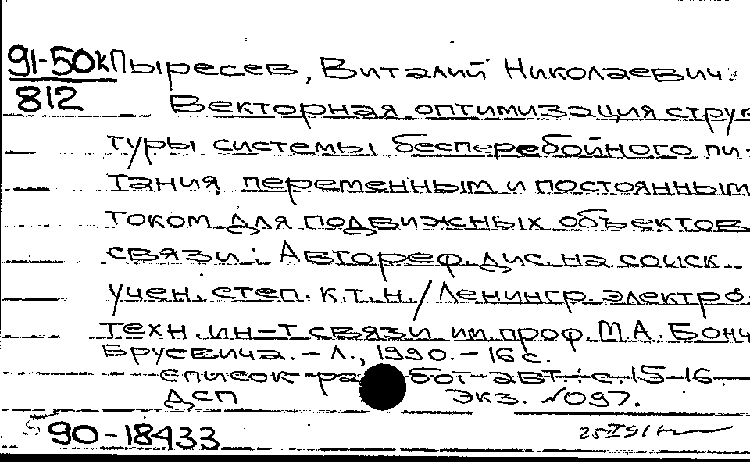 91-50к Пыресев, Виталий Николаевич.
812 Векторная оптимизация струк
туры системы бесперебойного пи-
тания переменным и постоянным
током для подвижных объектов
связи: Автореф. дис. на соиск.
учен. степ. к.т.н./Ленингр. электро-
техн. ин-т связи им. проф. М.А. Бонч-
Бруевича. - Л., 1990. - 16 с.
Список работ авт.: с. 15-16
ДСП Экз. №097.
90-18433